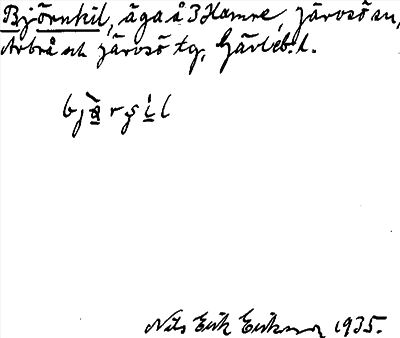 Björnkil, äga å 3 Hamre, Järvsö sn,
Arbrå och Järvsö tg, Gävleb. l.
bjä̀rşi̍l
Nils Erik Eriksson 1935.